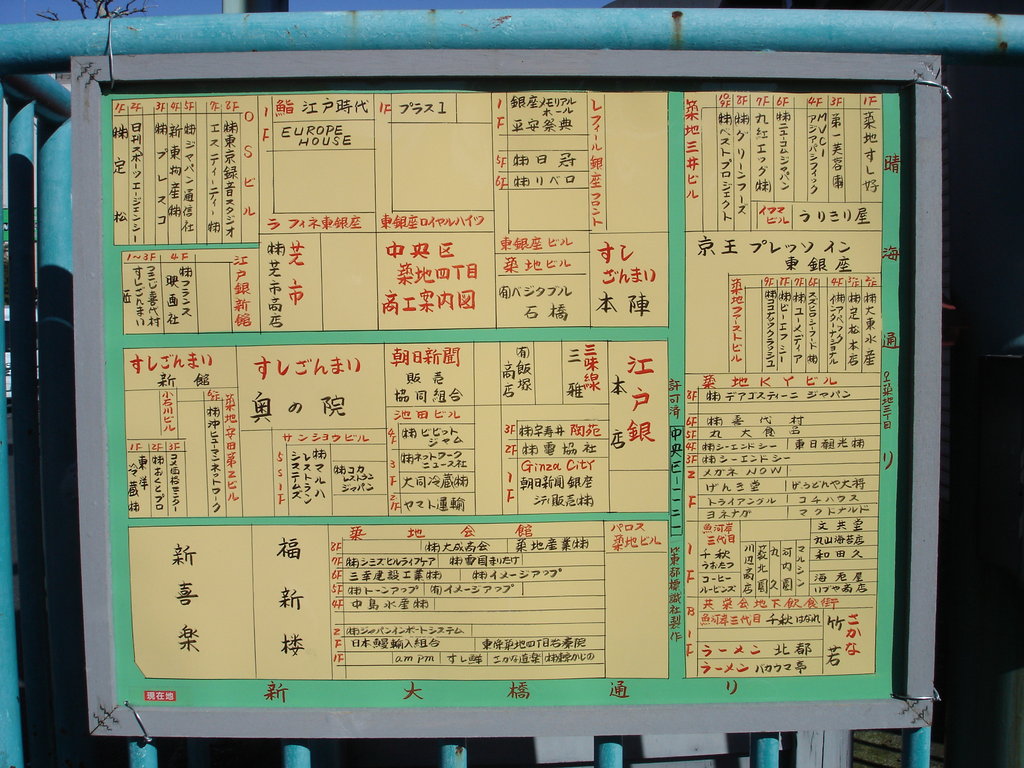 OSビル
8F ㈱東京録音スタジオ
7F エスティーティー㈱
5F ㈱ジャパン通信社
4F 新東物産㈱
3F ㈱プレスコ
2F 日刊スポーツエージェンシー
1F ㈱定松
1F 鮨 江戸時代
EUROPE HOUSE
ラフィネ東銀座
1F プラス1
東銀座ロイヤルハイツ
レフィール銀座フロント
1F 銀座メモリアルホール
平安祭典
5F ㈱日冠
6F ㈱リベロ
江戸銀新館
4F ㈱フランス映画社
1~3F
すしごんまい
芝市
㈱芝市商店
中央区
築地四丁目
商工案内図
東銀座ビル
築地ビル
㈲ベジタブル石橋
すしごんまい
本陣
すしごんまい
新館
小石川ビル
1F 東洋冷蔵㈱
2F ㈱おくとプロ
築地安田第2ビル
㈱沖ヒューマンネットワーク
すしごんまい
奥の院
サンショウビル
5F
1F
㈱マルハレストランシステムズ
㈱コカレストランジャパン
朝日新聞
販売
協同組合
池田ビル
4F ㈱ビビットジャム
3F ㈱ネットワークニュース社
大同冷蔵㈱
ヤマト運輸
㈲飯塚商店
三味線
三雅
江戸銀
本店
3F 陶苑
2F ㈱電協社
1F Ginza City
朝日新聞銀座
シティ販売㈱
新喜楽
福新楼
築地会館
8F ㈱大成商会 築地産業㈱
7F ㈱シミズビルライフケア ㈱雪国まいたけ
6F 三幸建設工業㈱ ㈱イメージアップ
5F ㈱トーンアップ ㈲イメージアップ
4F 中島水産㈱
2F ㈱ジャパンインポートシステム
日本鰻輸入組合
1F ampm すし鮮
パロス築地ビル
築地三井ビル
10F ㈱ベストプロジェクト
8F ㈱グリーンフーズ
7F 丸紅エッグ㈱
6F ㈱ニューコムジャパン
4F MVCIアジアパシフィック
3F
1F 築地すし好
イマスビル うりきり屋
京王プレッソイン
東銀座
築地ファーストビル
㈱大東水産
㈱定松本店
築地KYビル
8F ㈱デアゴスティーニ ジャパン
6F ㈱喜代村
5F 丸大食品
4F ㈱シーエンドシー 東日観光㈱
3F ㈱シーエンドシー
2F メガネNOW
げんき堂 げんどんや大将
1F トライアングル コチハウス
ヨネナガ マクドナルド
魚河岸三代目千秋
うおたつ
コーヒールービンズ
川辺商店
河内園
マルシン
文共堂
丸山海苔店
和田久
海老屋
B1F 共栄会地下飲食街
魚河岸三代目 千秋はなれ
さかな竹若
ラーメン 北都
ラーメン バカウマ亭
晴海通り
至築地三丁目
許可済 中央区
現在地
新大橋通り